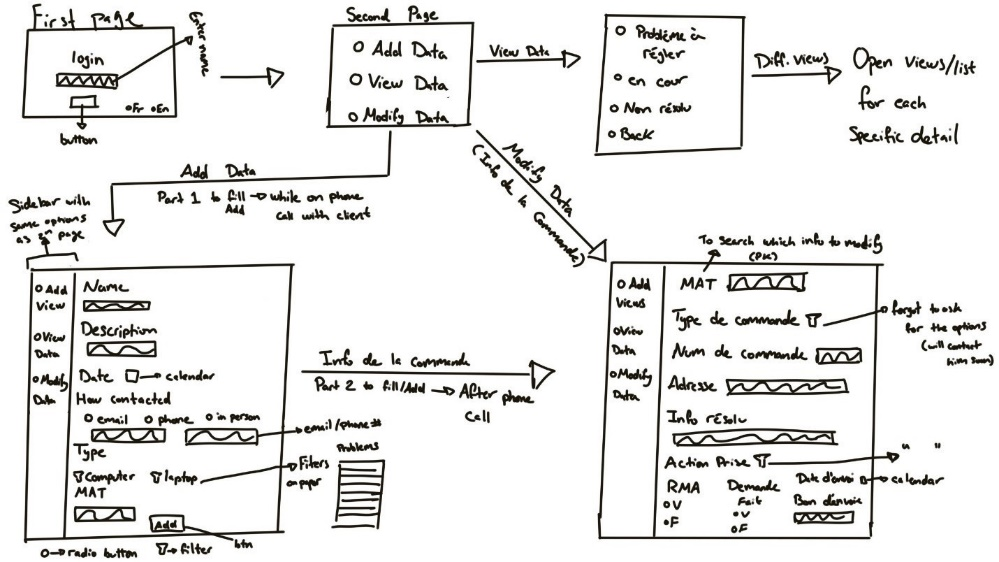 First page
login
Enter name
oFr oEn
button
Second Page
Add Data
View Data
Modify Data
View Data
Problème à
régler
en cour
Non résolu
Back
Diff. views
Open views/list
for each
Specific detail
Add Data
Part 1 to fill → while on phone
Add
call with client
Modify Data
(Info de la Commande)
Sidebar with
same options
as 2nd page
Add
View
View
Data
Modify
Data
Name
Description
Date → calendar
How contacted
email phone in person
email/phone#
Type
Computer laptop
MAT
Add
btn
Filters
on paper
Problems
→ radio button → filter
Info de la Commande
Part 2 to fill/Add → After phone
call
To search which info to modify
(PK)
Add
Views
View
Data
Modify
Data
MAT
Type de commande
forgot to ask
for the options
(will contact
him soon)
Num de commande
Adresse
Info résolu
Action Prise
" "
RMA Demande Date d'envoi → calendar
Fait Bon d'envoie
oV
oF
oV
oF